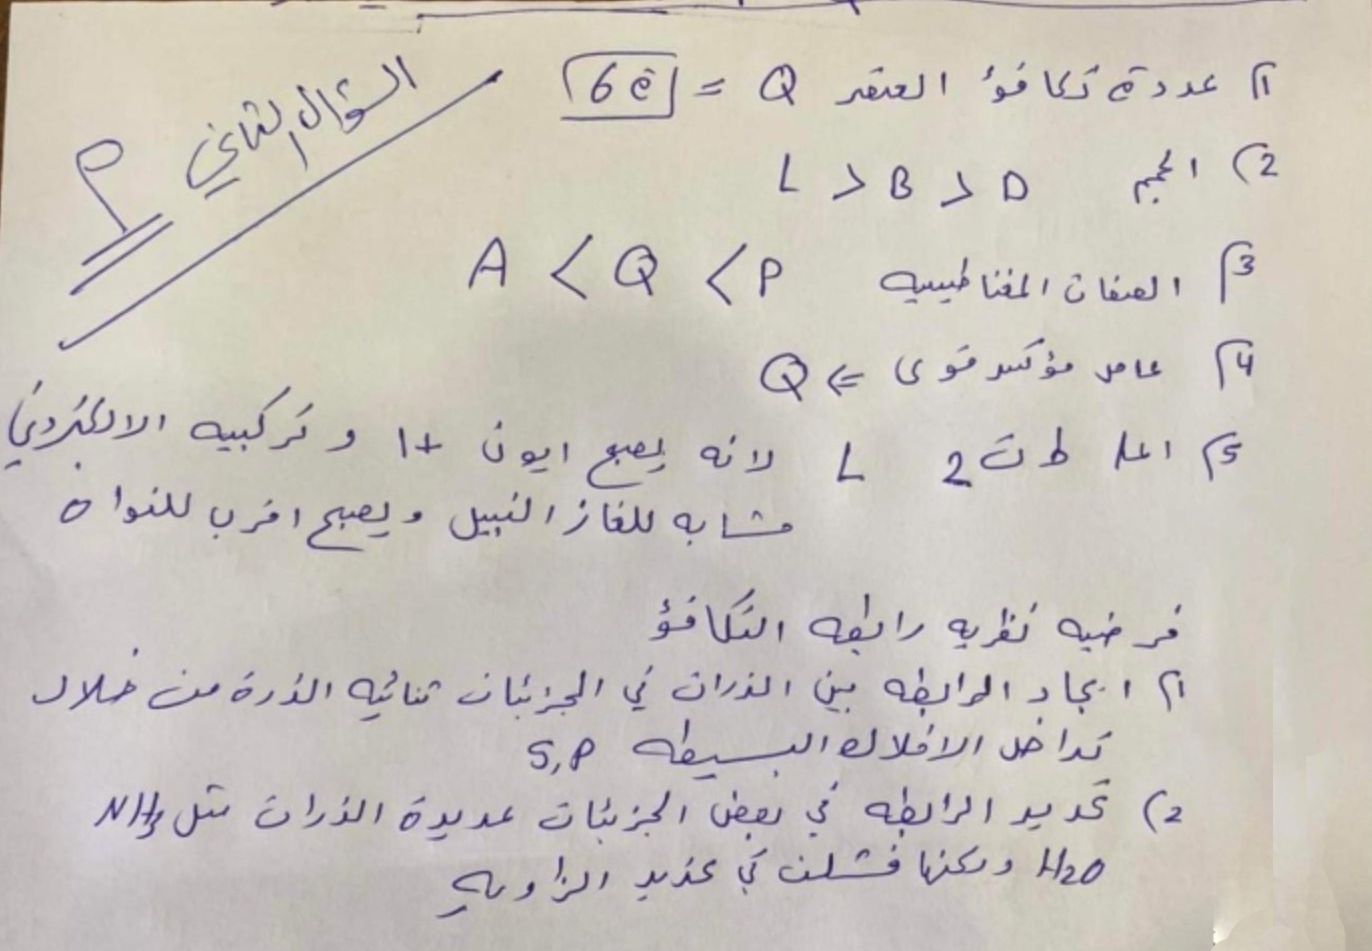 السؤال الثاني
م
1) عدد e تكافؤ العنصر Q = 6e
2) الحجم L > B > D
3) الصفات المغناطيسيه A < Q < P
4) عامل مؤكسد قوي ⇐ Q
5) اعلا ط ت2 L لانه يصبح ايون +1 و تركيبه الالكتروني
مشابه للغاز النبيل ويصبح اقرب للنواة
فرضيه نظريه رابطه التكافؤ
1) ايجاد الرابطه بين الذرات في الجزيئات ثنائيه الذرة من خلال
تداخل الافلاك البسيطه S,P
2) تحديد الرابطه في بعض الجزيئات عديدة الذرات مثل NH3
H2O ولكنها فشلت في تحديد الزاويه